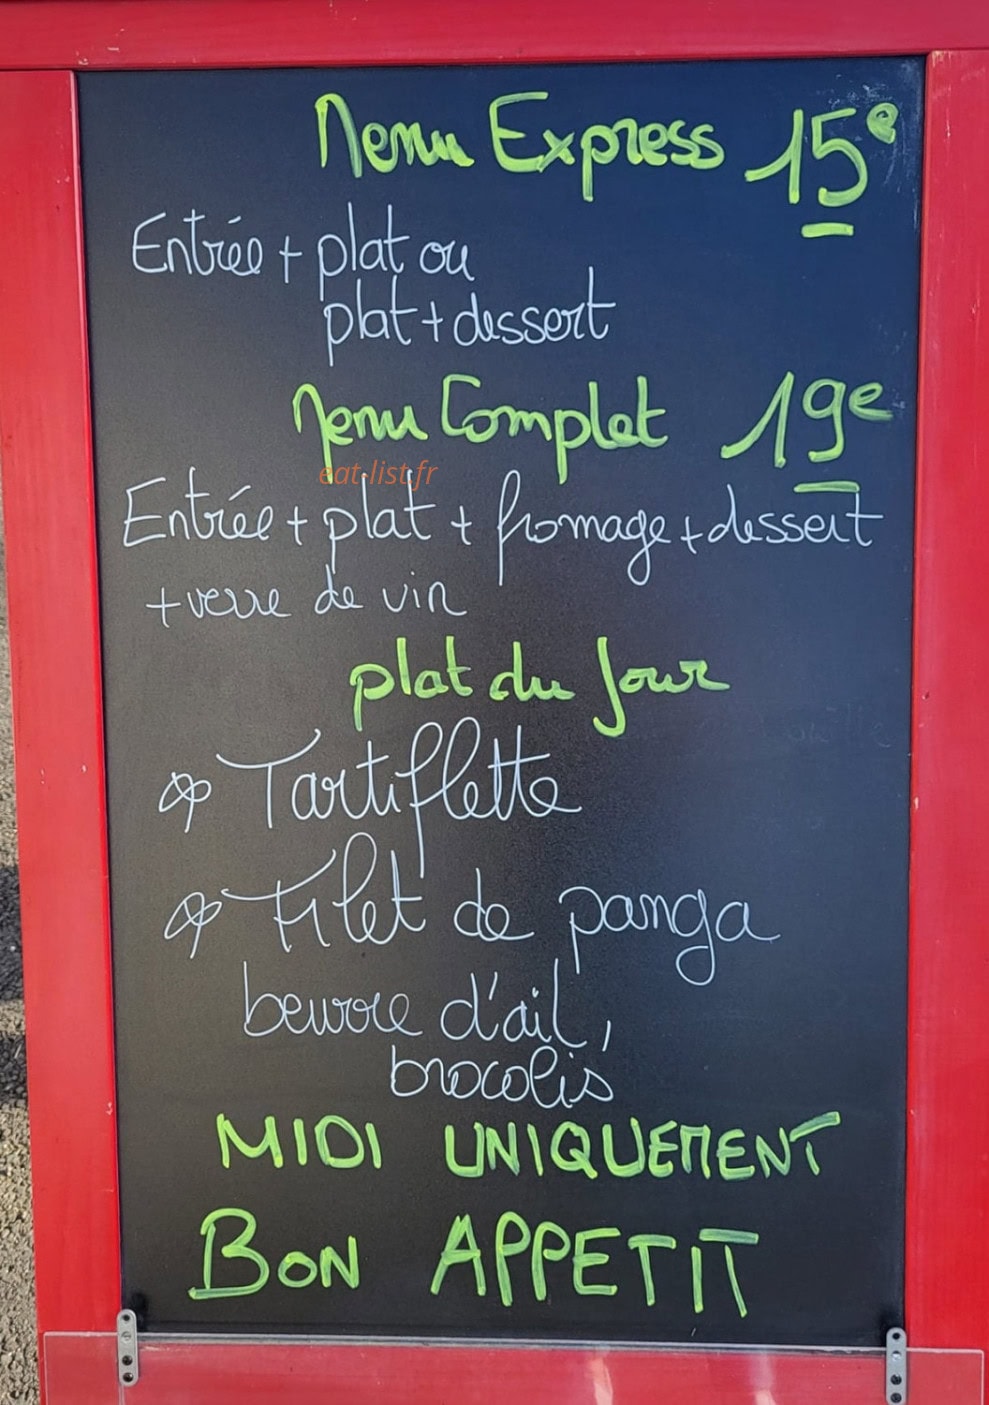 Menu Express 15€
Entrée + plat ou
plat + dessert
Menu Complet 19€
eat-list.fr
Entrée + plat + fromage + dessert
+ verre de vin
plat du Jour
Tartiflette
Filet de panga
beurre d'ail,
brocolis
MIDI UNIQUEMENT
BON APPETIT